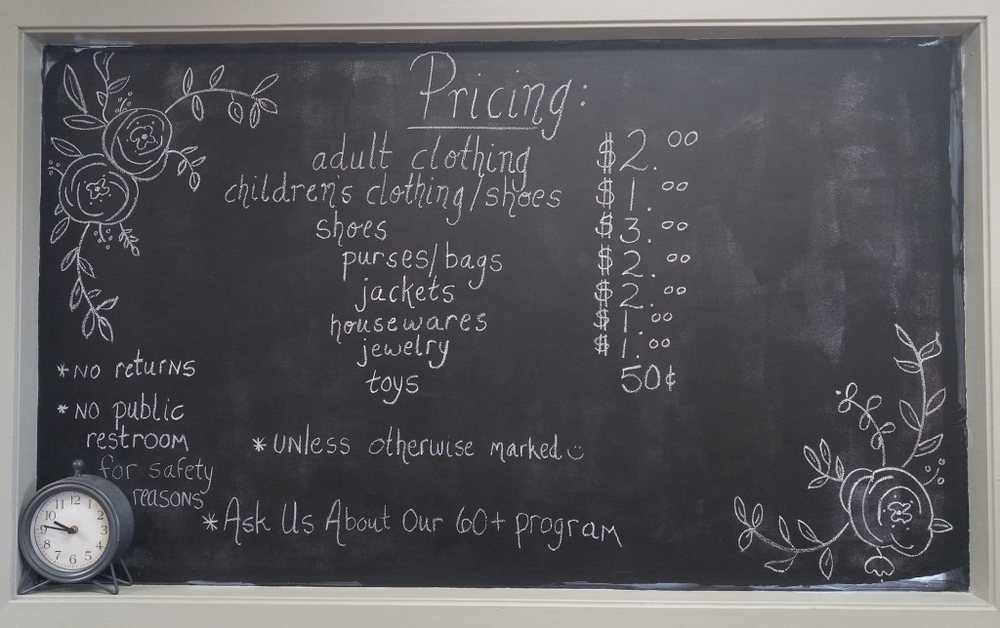 Pricing:
adult clothing $2.00
children's clothing/shoes $1.00
shoes $3.00
purses/bags $2.00
jackets $2.00
housewares $1.00
jewelry $1.00
toys 50¢
*NO returns
*NO public
restroom
for safety
reasons
*UNLESS otherwise marked☺
*Ask Us About Our 60+ program
12
1
2
3
4
5
6
7
8
9
10
11